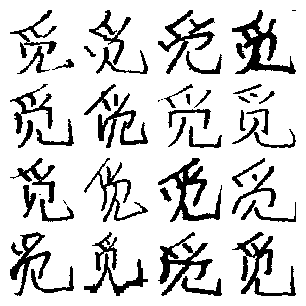 觅觅觅觅
觅觅觅觅
觅觅觅觅
觅觅觅觅